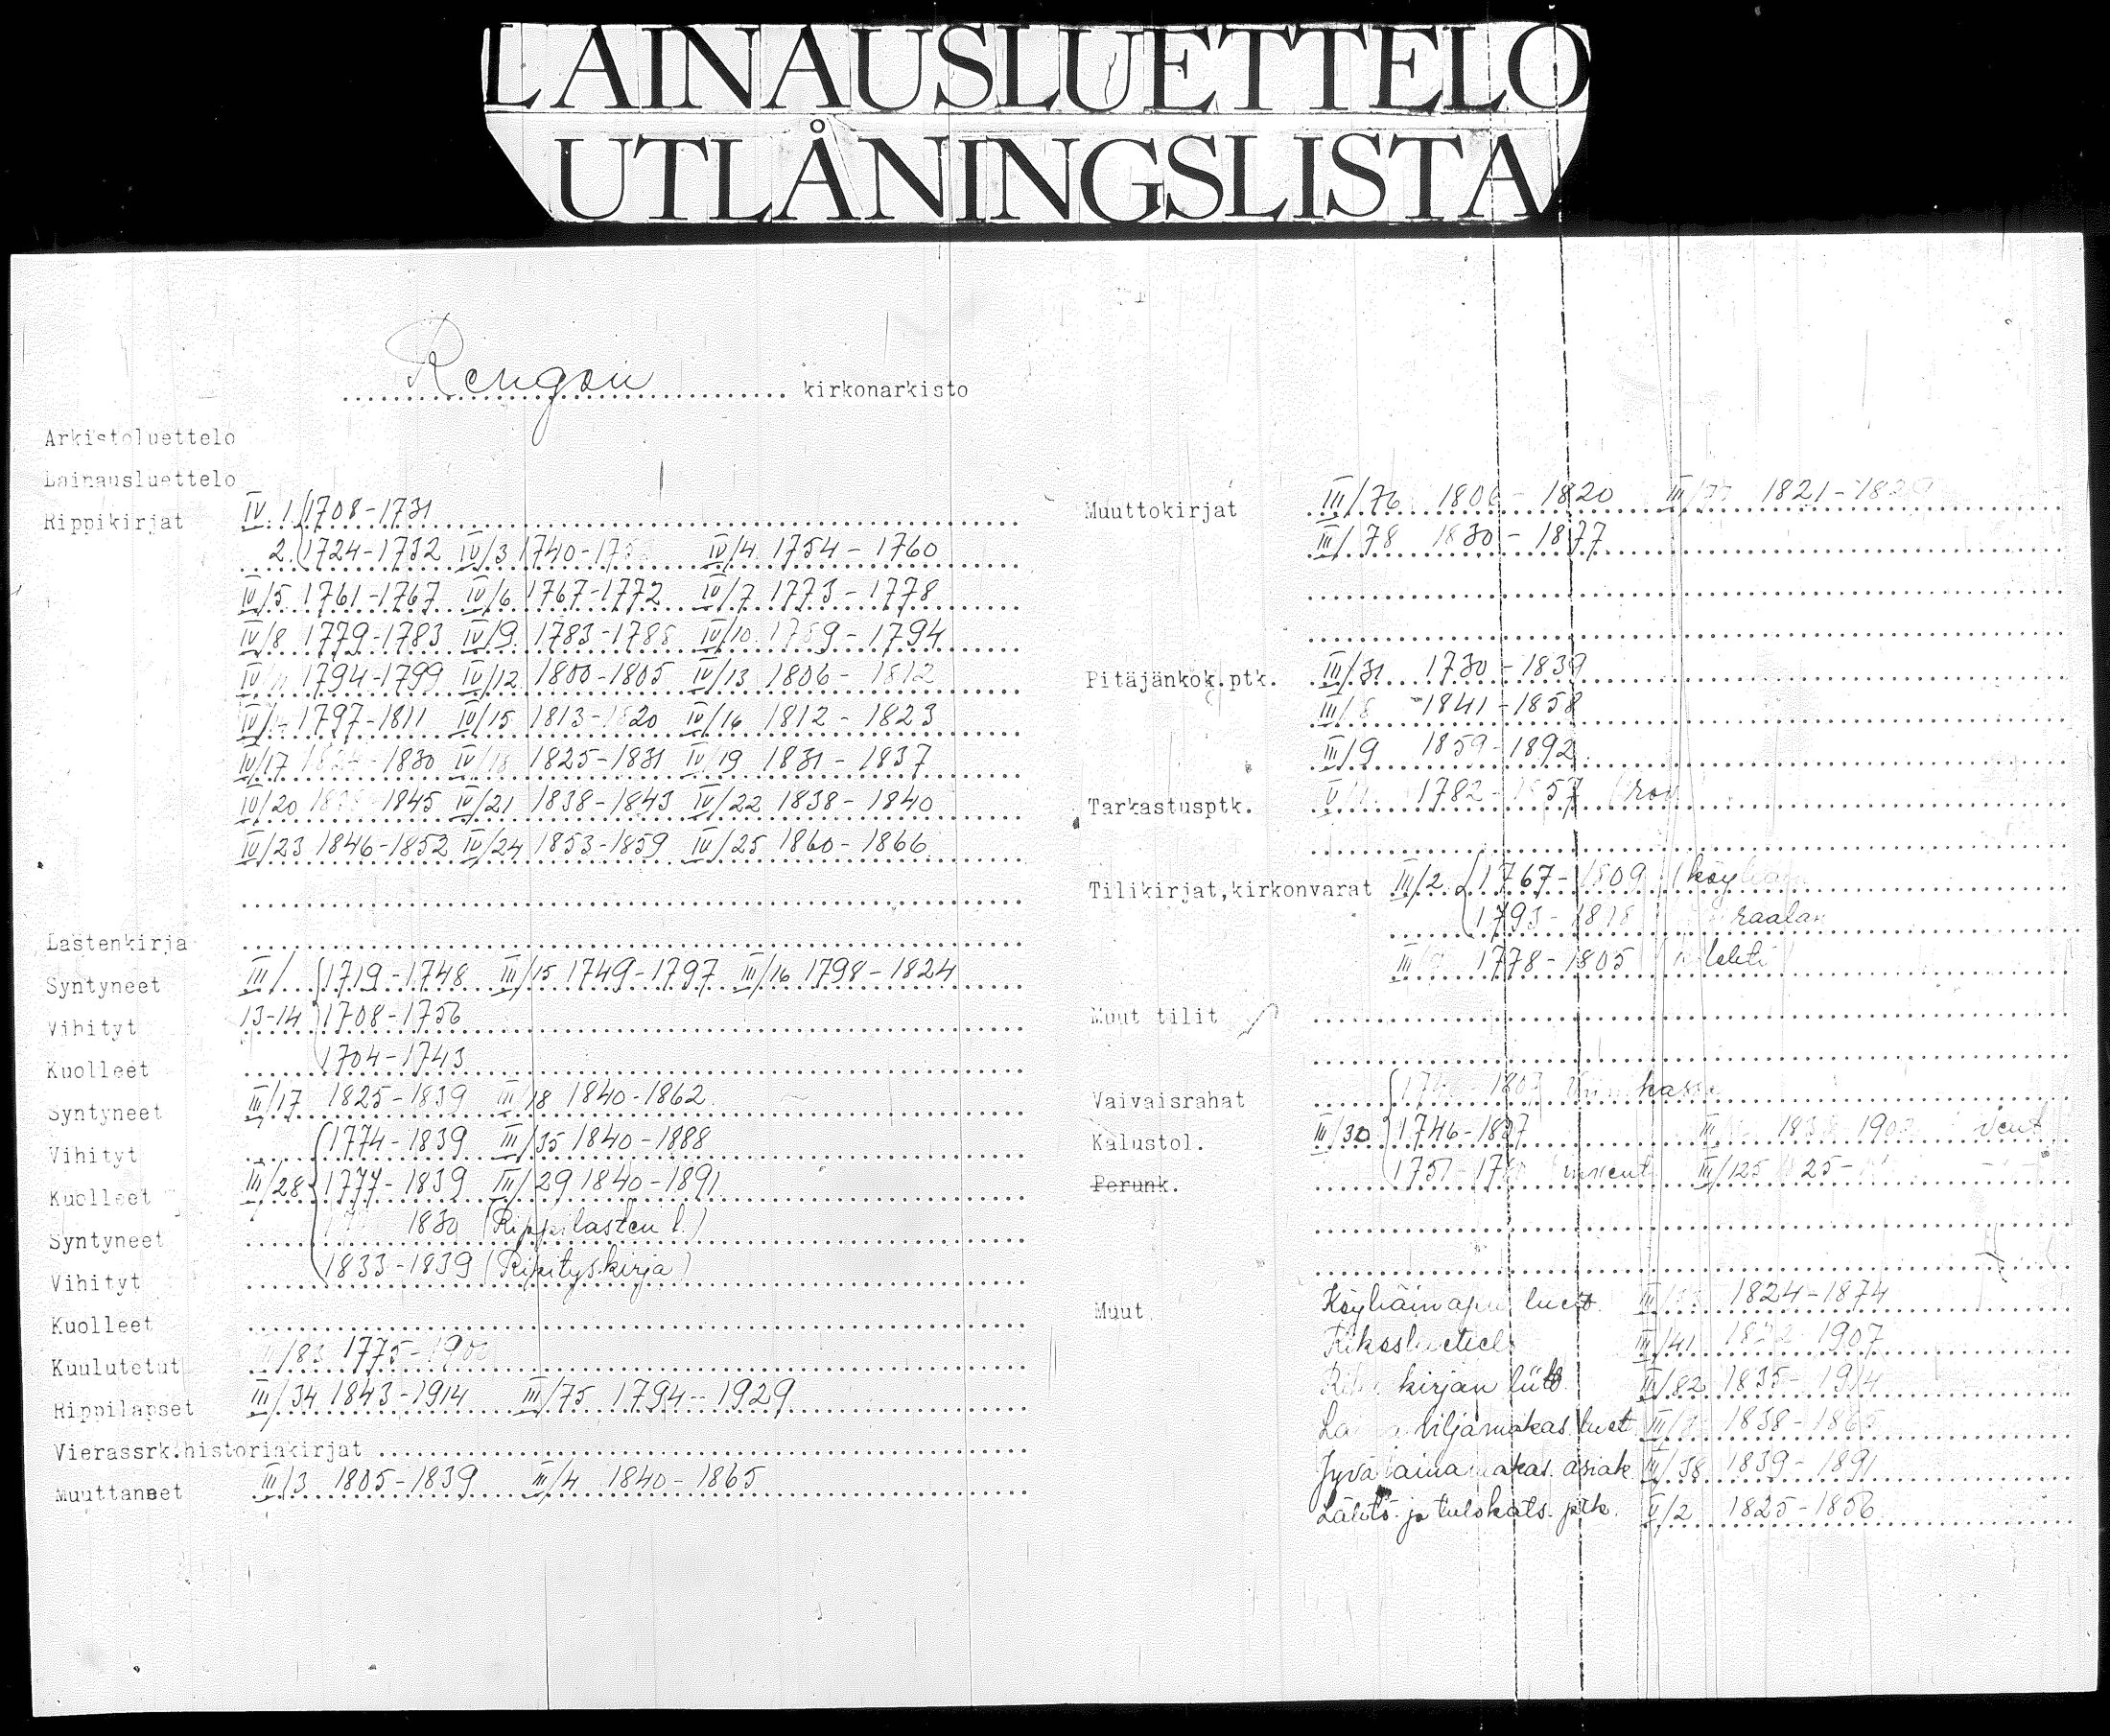 LAINAUSLUETTELO
UTLÅNINGSLISTA
Rengon kirkonarkisto
Arkistoluettelo
Lainausluettelo
Rippikirjat IV 1 1708-1731
2 1724-1732 IV/3 1740- IV/4 1754-1760
IV/5 1761-1767 IV/6 1767-1772 IV/7 1773-1778
IV/8 1779-1783 IV/9 1783-1788 IV/10 1789-1794
IV/ 1794-1799 IV/12 1800-1805 IV/13 1806-1812
IV/ 1797-1811 IV/15 1813-1820 IV/16 1812-1823
IV/17 1824-1830 IV/18 1825-1831 IV/19 1831-1837
IV/20 1845 IV/21 1838-1843 IV/22 1838-1840
IV/23 1846-1852 IV/24 1853-1859 IV/25 1860-1866
Lastenkirja
Syntyneet III/ 1719-1748 III/15 1749-1797 III/16 1798-1824
Vihityt 13-14 1708-1756
Kuolleet 1704-1743
Syntyneet III/17 1825-1839 III/18 1840-1862
Vihityt 1774-1839 III/35 1840-1888
Kuolleet III/28 1777-1839 III/29 1840-1891
Syntyneet 1830 (Rippilasten l.)
Vihityt 1833-1839 (Ripityskirja)
Kuolleet
Kuulutetut /83 1775-
Rippilapset III/34 1843-1914 III/75 1794-1929
Vierassrk.historiakirjat
Muuttaneet III/3 1805-1839 III/4 1840-1865
Muuttokirjat III/76 1806-1820 III/77 1821-1829
III/78 1830-1877
Pitäjänkok.ptk. III/31 1730-1839
III/8 1841-1858
III/9 1859-1892
Tarkastusptk. 1782-1857
Tilikirjat,kirkonvarat III/2 1767-1809 (köyhäin
1793-1818
III/ 1778-1805
Muut tilit
Vaivaisrahat 1807
Kalustol. III/30 1746-1827
Perunk. 1751- III/125
Muut Köyhäinapu luett. III/ 1824-1874
Rikosluettelo III/41 1907
kirjan liitt. III/82 1835-1914
viljamakas. luet. III/ 1838-1865
Jyvälainamakas. asiak. III/38 1839-1891
Lähtö- ja tulokats. ptk. V/2 1825-1856